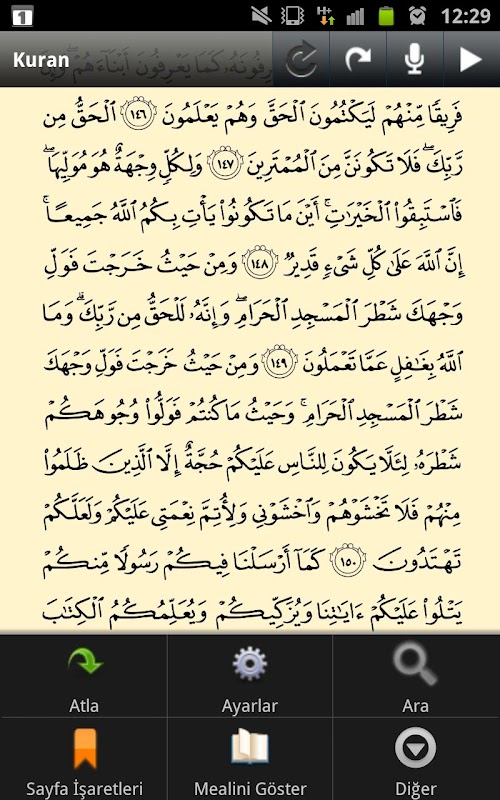 1
12:29
Kuran
رِفُونَهُۥ كَمَا يَعْرِفُونَ أَبْنَآءَهُمْ ۖ وَإِنَّ
فَرِيقًا مِّنْهُمْ لَيَكْتُمُونَ ٱلْحَقَّ وَهُمْ يَعْلَمُونَ ١٤٦ ٱلْحَقُّ مِن
رَّبِّكَ ۖ فَلَا تَكُونَنَّ مِنَ ٱلْمُمْتَرِينَ ١٤٧ وَلِكُلٍّ وِجْهَةٌ هُوَ مُوَلِّيهَا ۖ
فَٱسْتَبِقُوا۟ ٱلْخَيْرَٰتِ ۚ أَيْنَ مَا تَكُونُوا۟ يَأْتِ بِكُمُ ٱللَّهُ جَمِيعًا ۚ
إِنَّ ٱللَّهَ عَلَىٰ كُلِّ شَىْءٍ قَدِيرٌ ١٤٨ وَمِنْ حَيْثُ خَرَجْتَ فَوَلِّ
وَجْهَكَ شَطْرَ ٱلْمَسْجِدِ ٱلْحَرَامِ ۖ وَإِنَّهُۥ لَلْحَقُّ مِن رَّبِّكَ ۗ وَمَا
ٱللَّهُ بِغَٰفِلٍ عَمَّا تَعْمَلُونَ ١٤٩ وَمِنْ حَيْثُ خَرَجْتَ فَوَلِّ وَجْهَكَ
شَطْرَ ٱلْمَسْجِدِ ٱلْحَرَامِ ۚ وَحَيْثُ مَا كُنتُمْ فَوَلُّوا۟ وُجُوهَكُمْ
شَطْرَهُۥ لِئَلَّا يَكُونَ لِلنَّاسِ عَلَيْكُمْ حُجَّةٌ إِلَّا ٱلَّذِينَ ظَلَمُوا۟
مِنْهُمْ فَلَا تَخْشَوْهُمْ وَٱخْشَوْنِى وَلِأُتِمَّ نِعْمَتِى عَلَيْكُمْ وَلَعَلَّكُمْ
تَهْتَدُونَ ١٥٠ كَمَآ أَرْسَلْنَا فِيكُمْ رَسُولًا مِّنكُمْ
يَتْلُوا۟ عَلَيْكُمْ ءَايَٰتِنَا وَيُزَكِّيكُمْ وَيُعَلِّمُكُمُ ٱلْكِتَٰبَ
Atla
Ayarlar
Ara
Sayfa İşaretleri
Mealini Göster
Diğer